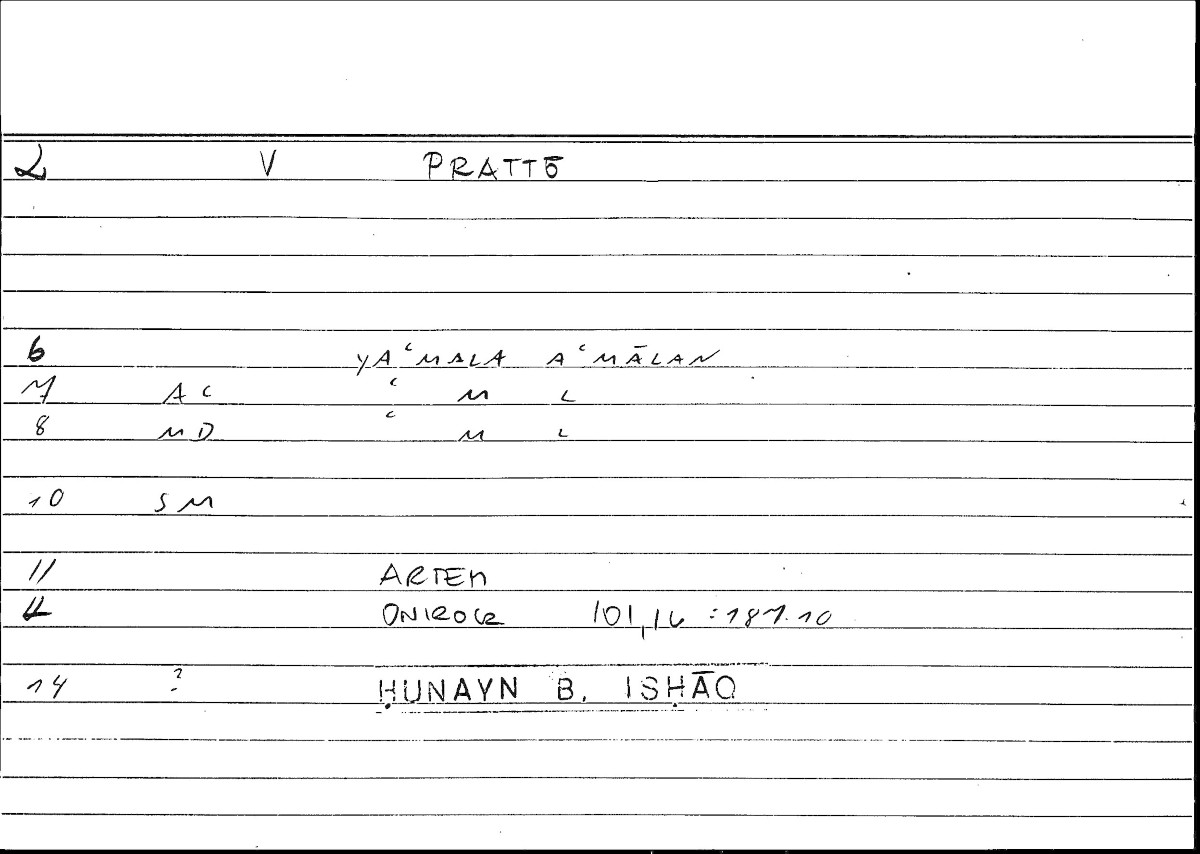 2 V PRATTŌ
6 YAʿMALA AʿMĀLAN
7 AC ʿ M L
8 MD ʿ M L
10 SM
11 ARTEM
12 ONIROCR 101,16 : 187.10
14 ? ḤUNAYN B. ISḤĀQ